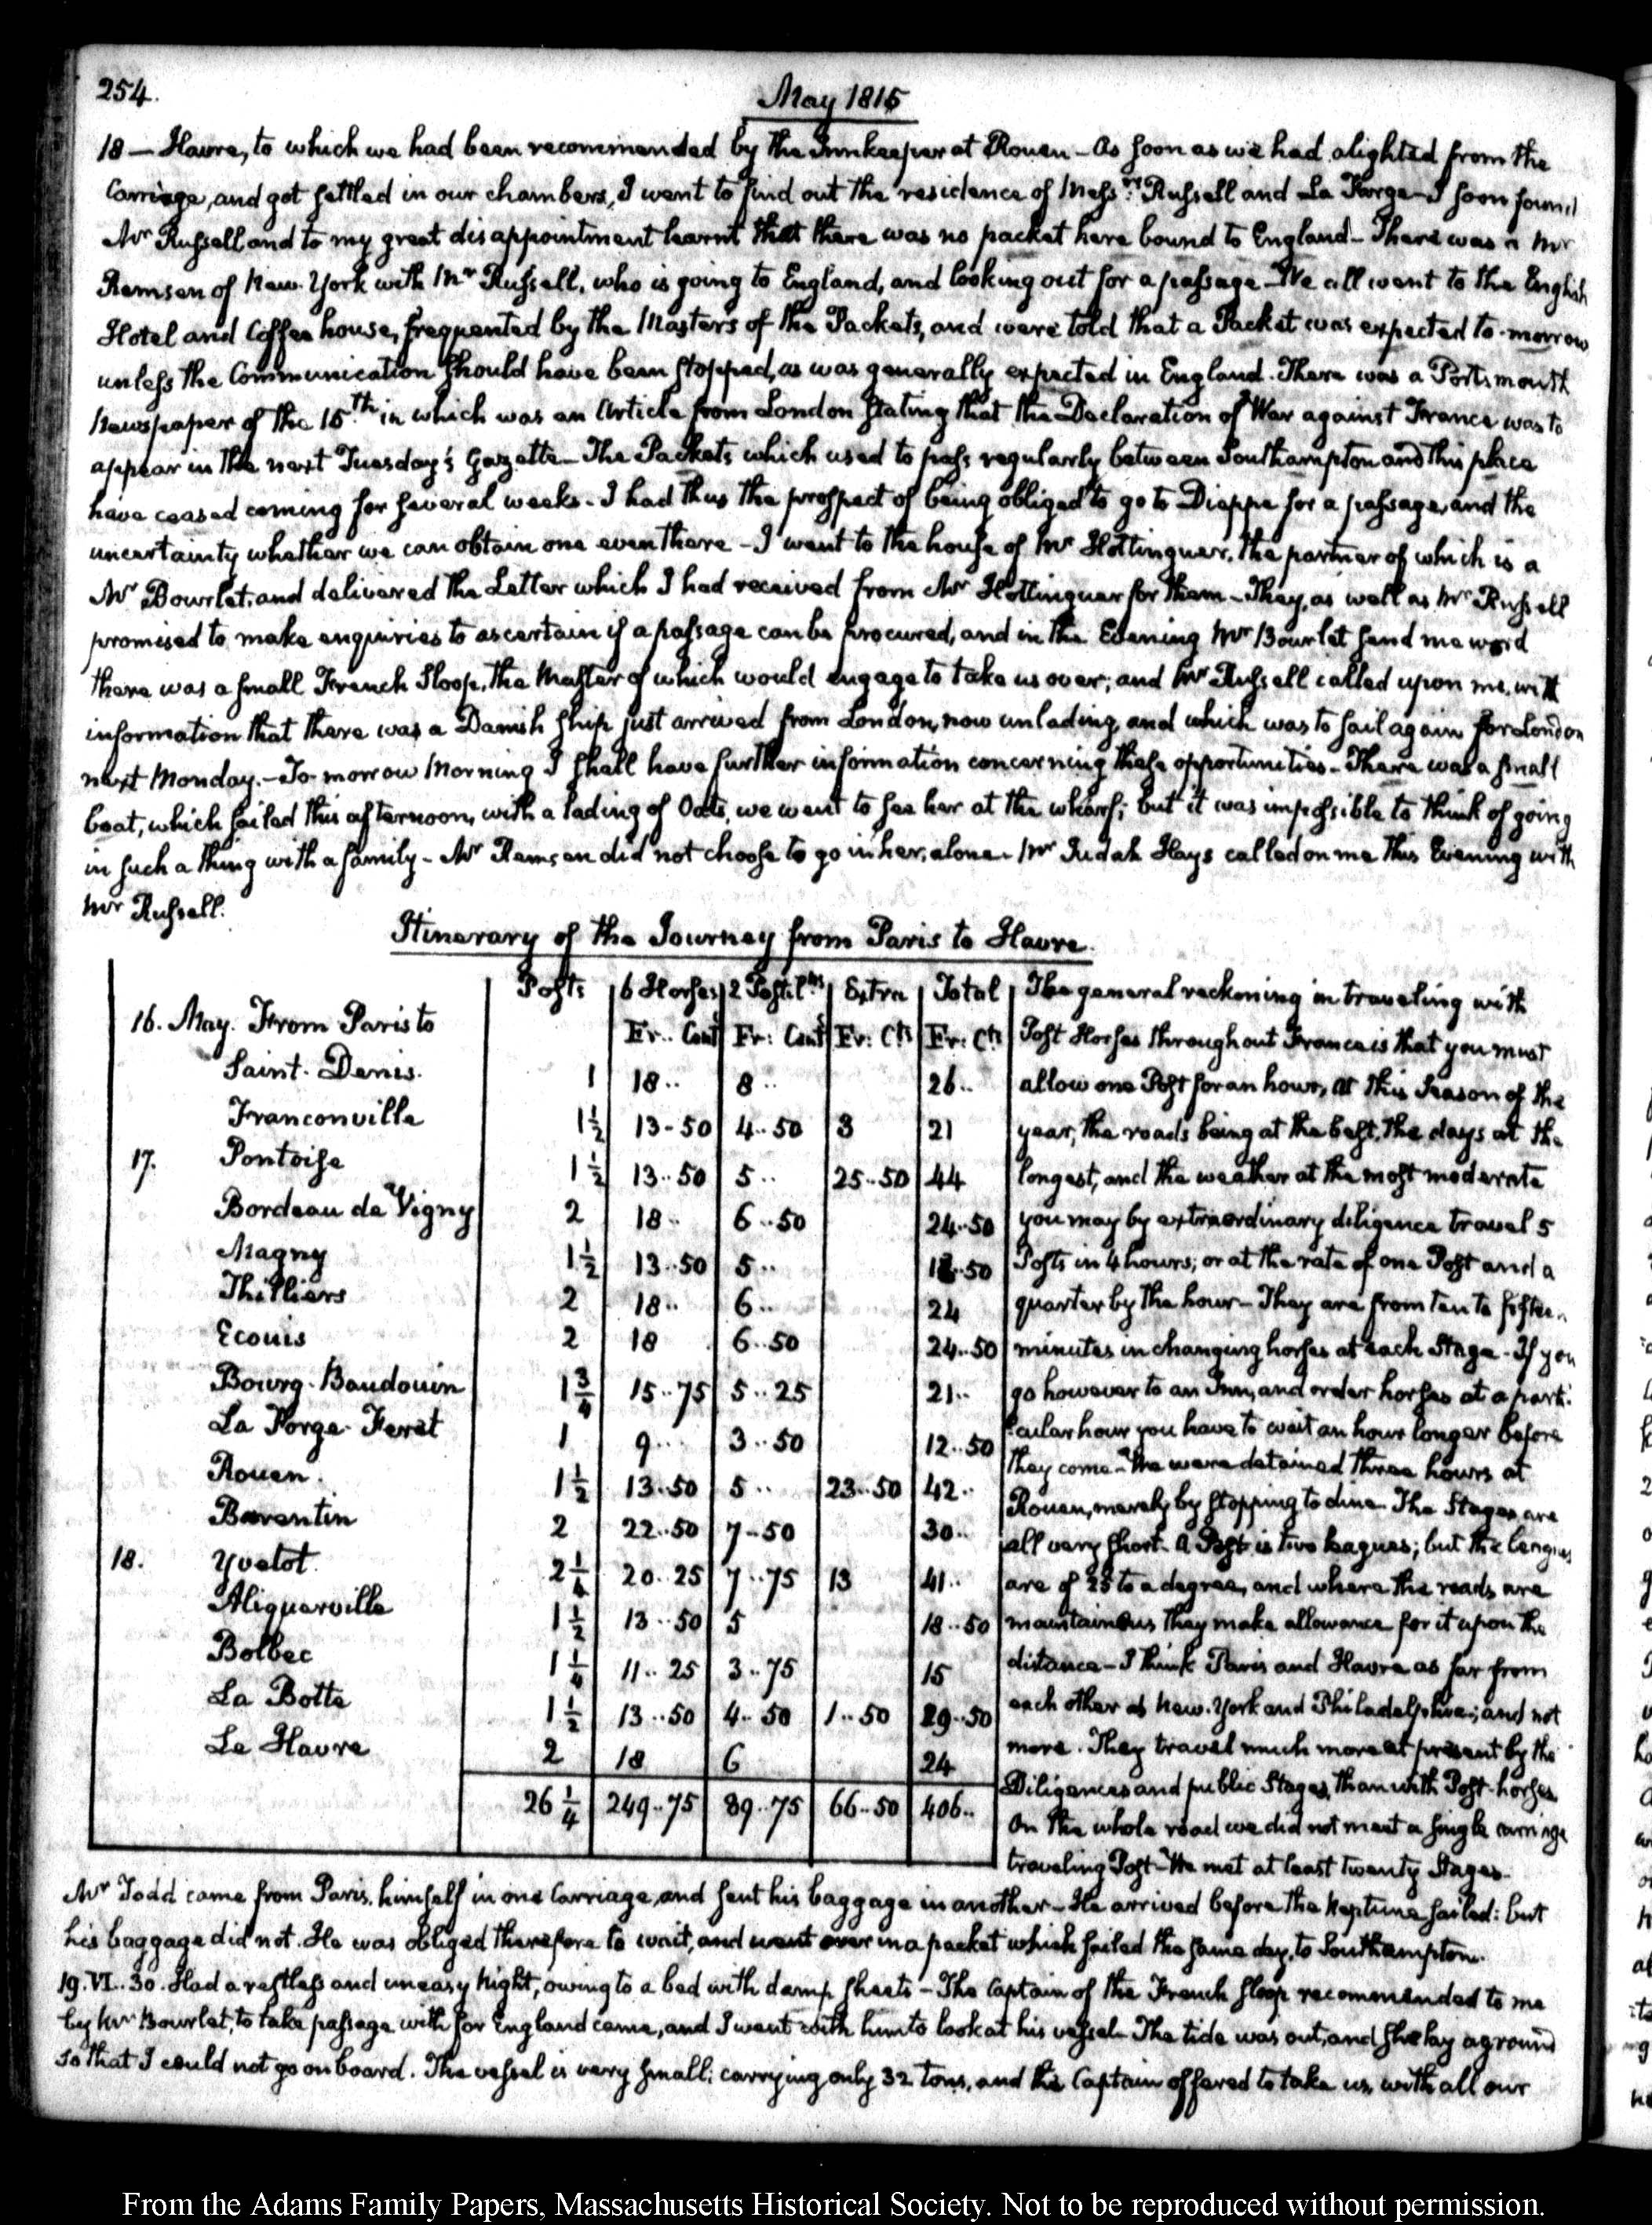 254.
May 1815
18 — Havre, to which we had been recommended by the Innkeeper at Rouen – As soon as we had alighted from the
Carriage, and got settled in our chambers, I went to find out the residence of Messrs. Russell and La Forge – I soon found
Mr Russell and to my great disappointment learnt that there was no packet here bound to England – There was a Mr
Remsen of New-York with Mr Russell, who is going to England, and looking out for a passage – We all went to the English
Hotel and Coffee house, frequented by the Masters of the Packets, and were told that a Packet was expected to-morrow
unless the Communication should have been stopped, as was generally expected in England. There was a Portsmouth
Newspaper of the 15th in which was an Article from London stating that the Declaration of War against France was to
appear in the next Tuesday's Gazette – The Packets which used to pass regularly between Southampton and this place
have ceased coming for several weeks – I had thus the prospect of being obliged to go to Dieppe for a passage, and the
uncertainty whether we can obtain one even there – I went to the house of Mr Hottinguer, the partner of which is a
Mr Bourlet, and delivered the Letter which I had received from Mr Hottinguer for them – They, as well as Mr Russell
promised to make enquiries to ascertain if a passage can be procured, and in the Evening Mr Bourlet send me word
there was a small French Sloop, the Master of which would engage to take us over; and Mr Russell called upon me, with
information that there was a Danish ship just arrived from London, now unlading, and which was to sail again for London
next Monday. – To-morrow Morning I shall have further information concerning these opportunities – There was a small
boat, which sailed this afternoon, with a lading of Oats, we went to see her at the wharf; but it was impossible to think of going
in such a thing with a family – Mr Remsen did not choose to go in her, alone – Mr Judah Hays called on me this Evening with
Mr Russell.
Itinerary of the Journey from Paris to Havre.
Posts | 6 Horses | 2 Postilns | Extra | Total
16. May. From Paris to | Fr.. Cent | Fr: Cent | Fr: Cts | Fr: Cts
Saint-Denis. 1 18.. 8.. 26..
Franconville 1½ 13-50 4..50 3 21
17. Pontoise 1½ 13..50 5.. 25..50 44
Bordeau de Vigny 2 18.. 6..50 24..50
Magny 1½ 13..50 5.. 18..50
Thilliers 2 18.. 6.. 24
Ecouis 2 18 6..50 24..50
Bourg-Baudouin 1¾ 15..75 5..25 21..
La Forge-Feret 1 9.. 3..50 12..50
Rouen. 1½ 13.50 5.. 23..50 42..
Barentin 2 22..50 7-50 30..
18. Yvetot. 2¼ 20..25 7..75 13 41..
Aliquerville 1½ 13..50 5 18..50
Bolbec 1¼ 11..25 3..75 15
La Botte 1½ 13..50 4..50 1..50 29..50
Le Havre 2 18 6 24
26¼ 249..75 89..75 66..50 406..
The general reckoning in traveling with
Post Horses throughout France is that you must
allow one Post for an hour, at this Season of the
year, the roads being at the best, the days at the
longest, and the weather at the most moderate
you may by extraordinary diligence travel 5
Posts in 4 hours; or at the rate of one Post and a
quarter by the hour – They are from ten to fifteen
minutes in changing horses at each Stage – If you
go however to an Inn, and order horses at a parti-
cular hour you have to wait an hour longer before
they come – We were detained three hours at
Rouen, merely by stopping to dine. The Stages are
all very short. A Post is two leagues; but the leagues
are of 25 to a degree, and where the roads are
mountainous they make allowance for it upon the
distance – I think Paris and Havre as far from
each other as New-York and Philadelphia; and not
more. They travel much more at present by the
Diligences and public Stages, than with Post-horses
On the whole road we did not meet a single carriage
traveling Post – We met at least twenty Stages.
Mr Todd came from Paris, himself in one Carriage, and sent his baggage in another – He arrived before the Neptune sailed: but
his baggage did not. He was obliged therefore to wait, and went over in a packet which sailed the same day, to Southampton.
19. VI..30. Had a restless and uneasy Night, owing to a bed with damp sheets – The Captain of the French sloop recommended to me
by Mr Bourlet, to take passage with for England came, and I went with him to look at his vessel – The tide was out, and she lay aground
so that I could not go on board. The vessel is very small; carrying only 32 tons, and the Captain offered to take us, with all our
From the Adams Family Papers, Massachusetts Historical Society. Not to be reproduced without permission.